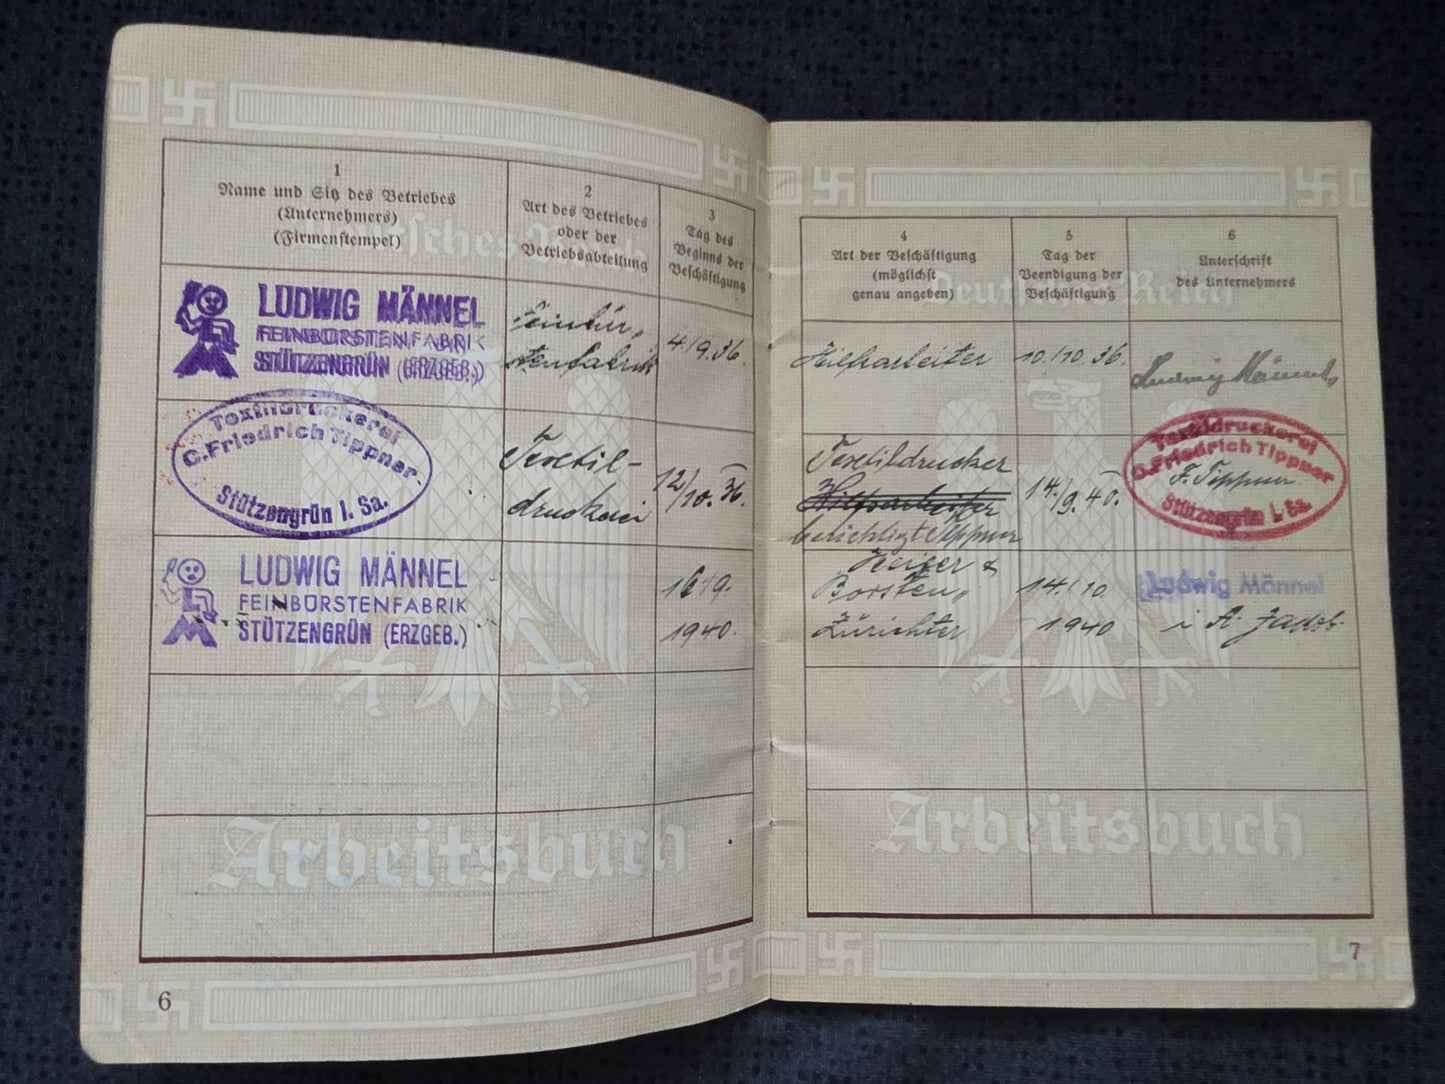 1
Name und Sitz des Betriebes
(Unternehmers)
(Firmenstempel)
2
Art des Betriebes
oder der
Betriebsabteilung
3
Tag des
Beginns der
Beschäftigung
LUDWIG MÄNNEL
FEINBÜRSTENFABRIK
STÜTZENGRÜN (ERZGEB.)
Feinbür„
stenfabrik
4./9.36.
Textildruckerei
C. Friedrich Tippner
Stützengrün i. Sa.
Textil-
druckerei
12./
10. 36.
LUDWIG MÄNNEL
FEINBÜRSTENFABRIK
STÜTZENGRÜN (ERZGEB.)
1940.
Deutsches Reich
Arbeitsbuch
6
4
Art der Beschäftigung
(möglichst
genau angeben)
5
Tag der
Beendigung der
Beschäftigung
6
Unterschrift
des Unternehmers
Hilfsarbeiter
10./10.36.
Ludwig Männel
Textildrucker
Hilfsarbeiter
berichtigt Tippner
14./
9.40.
Textildruckerei
C. Friedrich Tippner
F. Tippner
Stützengrün i. Sa.
Heizer &
Borsten„
Zurichter
14./10.
1940
Ludwig Männel
i A. Jacob.
Deutsches Reich
Arbeitsbuch
7